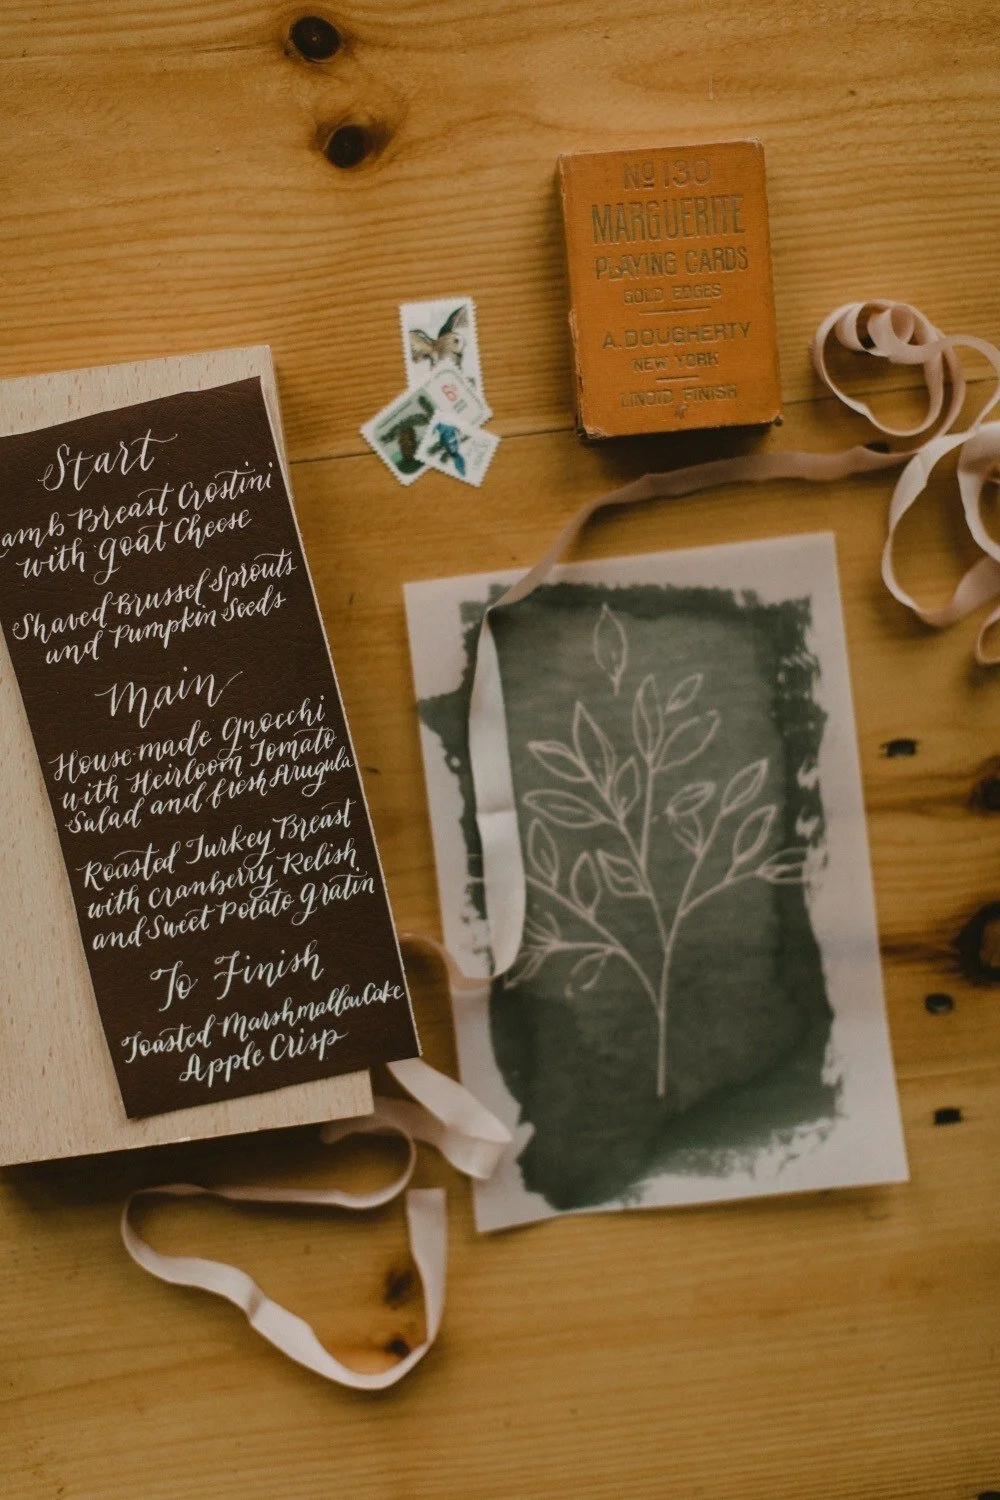 Start
Lamb Breast Crostini
with Goat Cheese
Shaved Brussel Sprouts
and Pumpkin Seeds
Main
House-made Gnocchi
with Heirloom Tomato
Salad and fresh Arugula
Roasted Turkey Breast
with Cranberry Relish
and Sweet Potato Gratin
To Finish
Toasted Marshmallow Cake
Apple Crisp
No 130
MARGUERITE
PLAYING CARDS
GOLD EDGES
A. DOUGHERTY
NEW YORK
LINOID FINISH